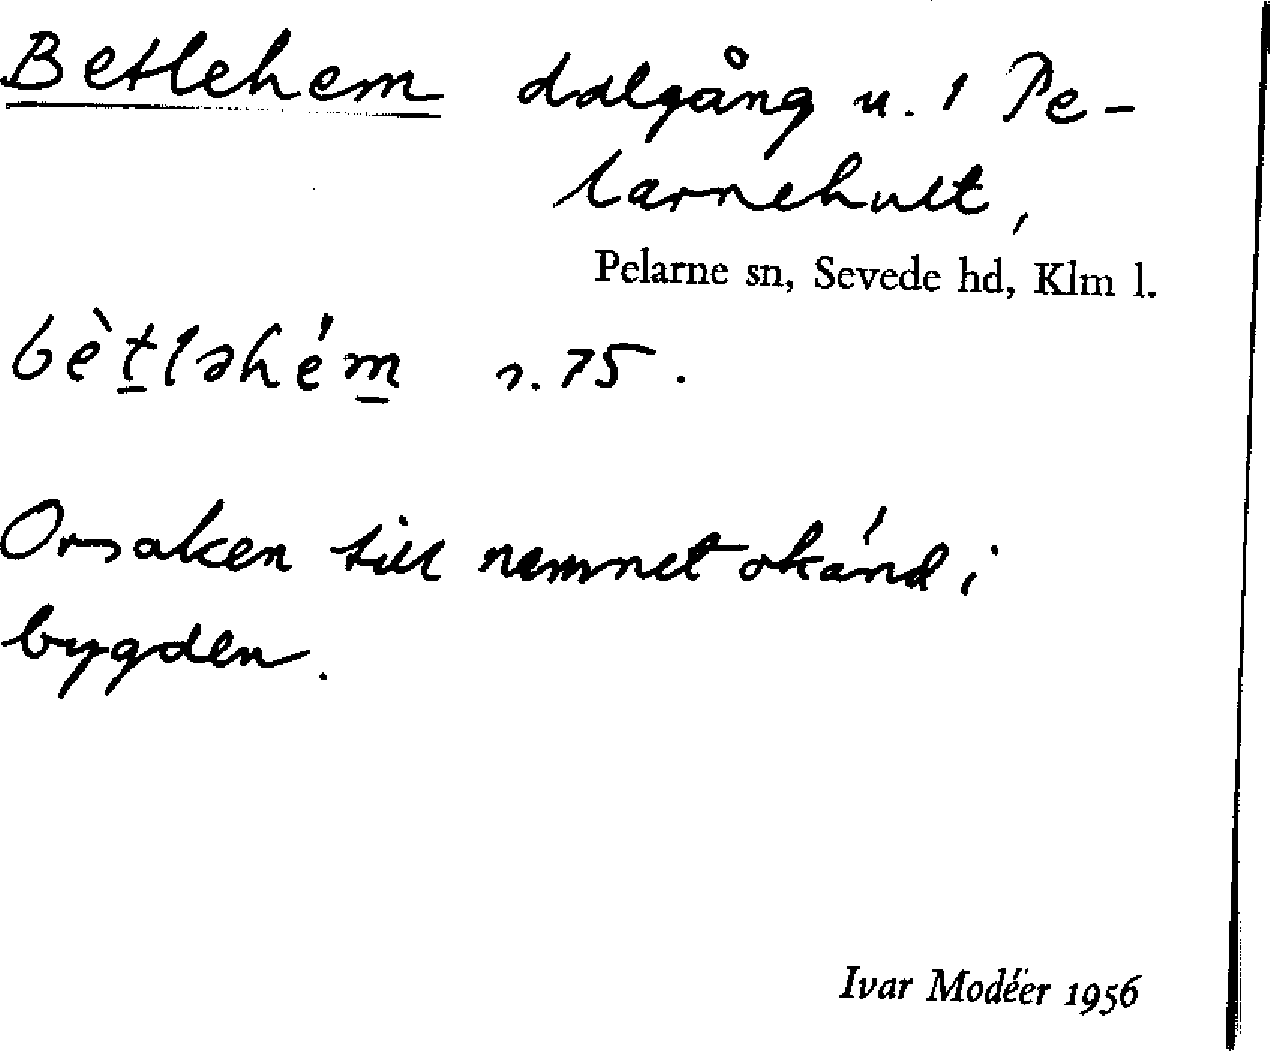 Betlehem dalgång u. 1 Pe-
larnehult,
Pelarne sn, Sevede hd, Klm l.
bètləhém s. 75.
Orsaken till namnet okänd i
bygden.
Ivar Modéer 1956